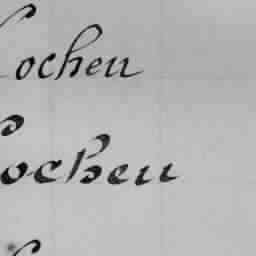 Lochen
Lochen